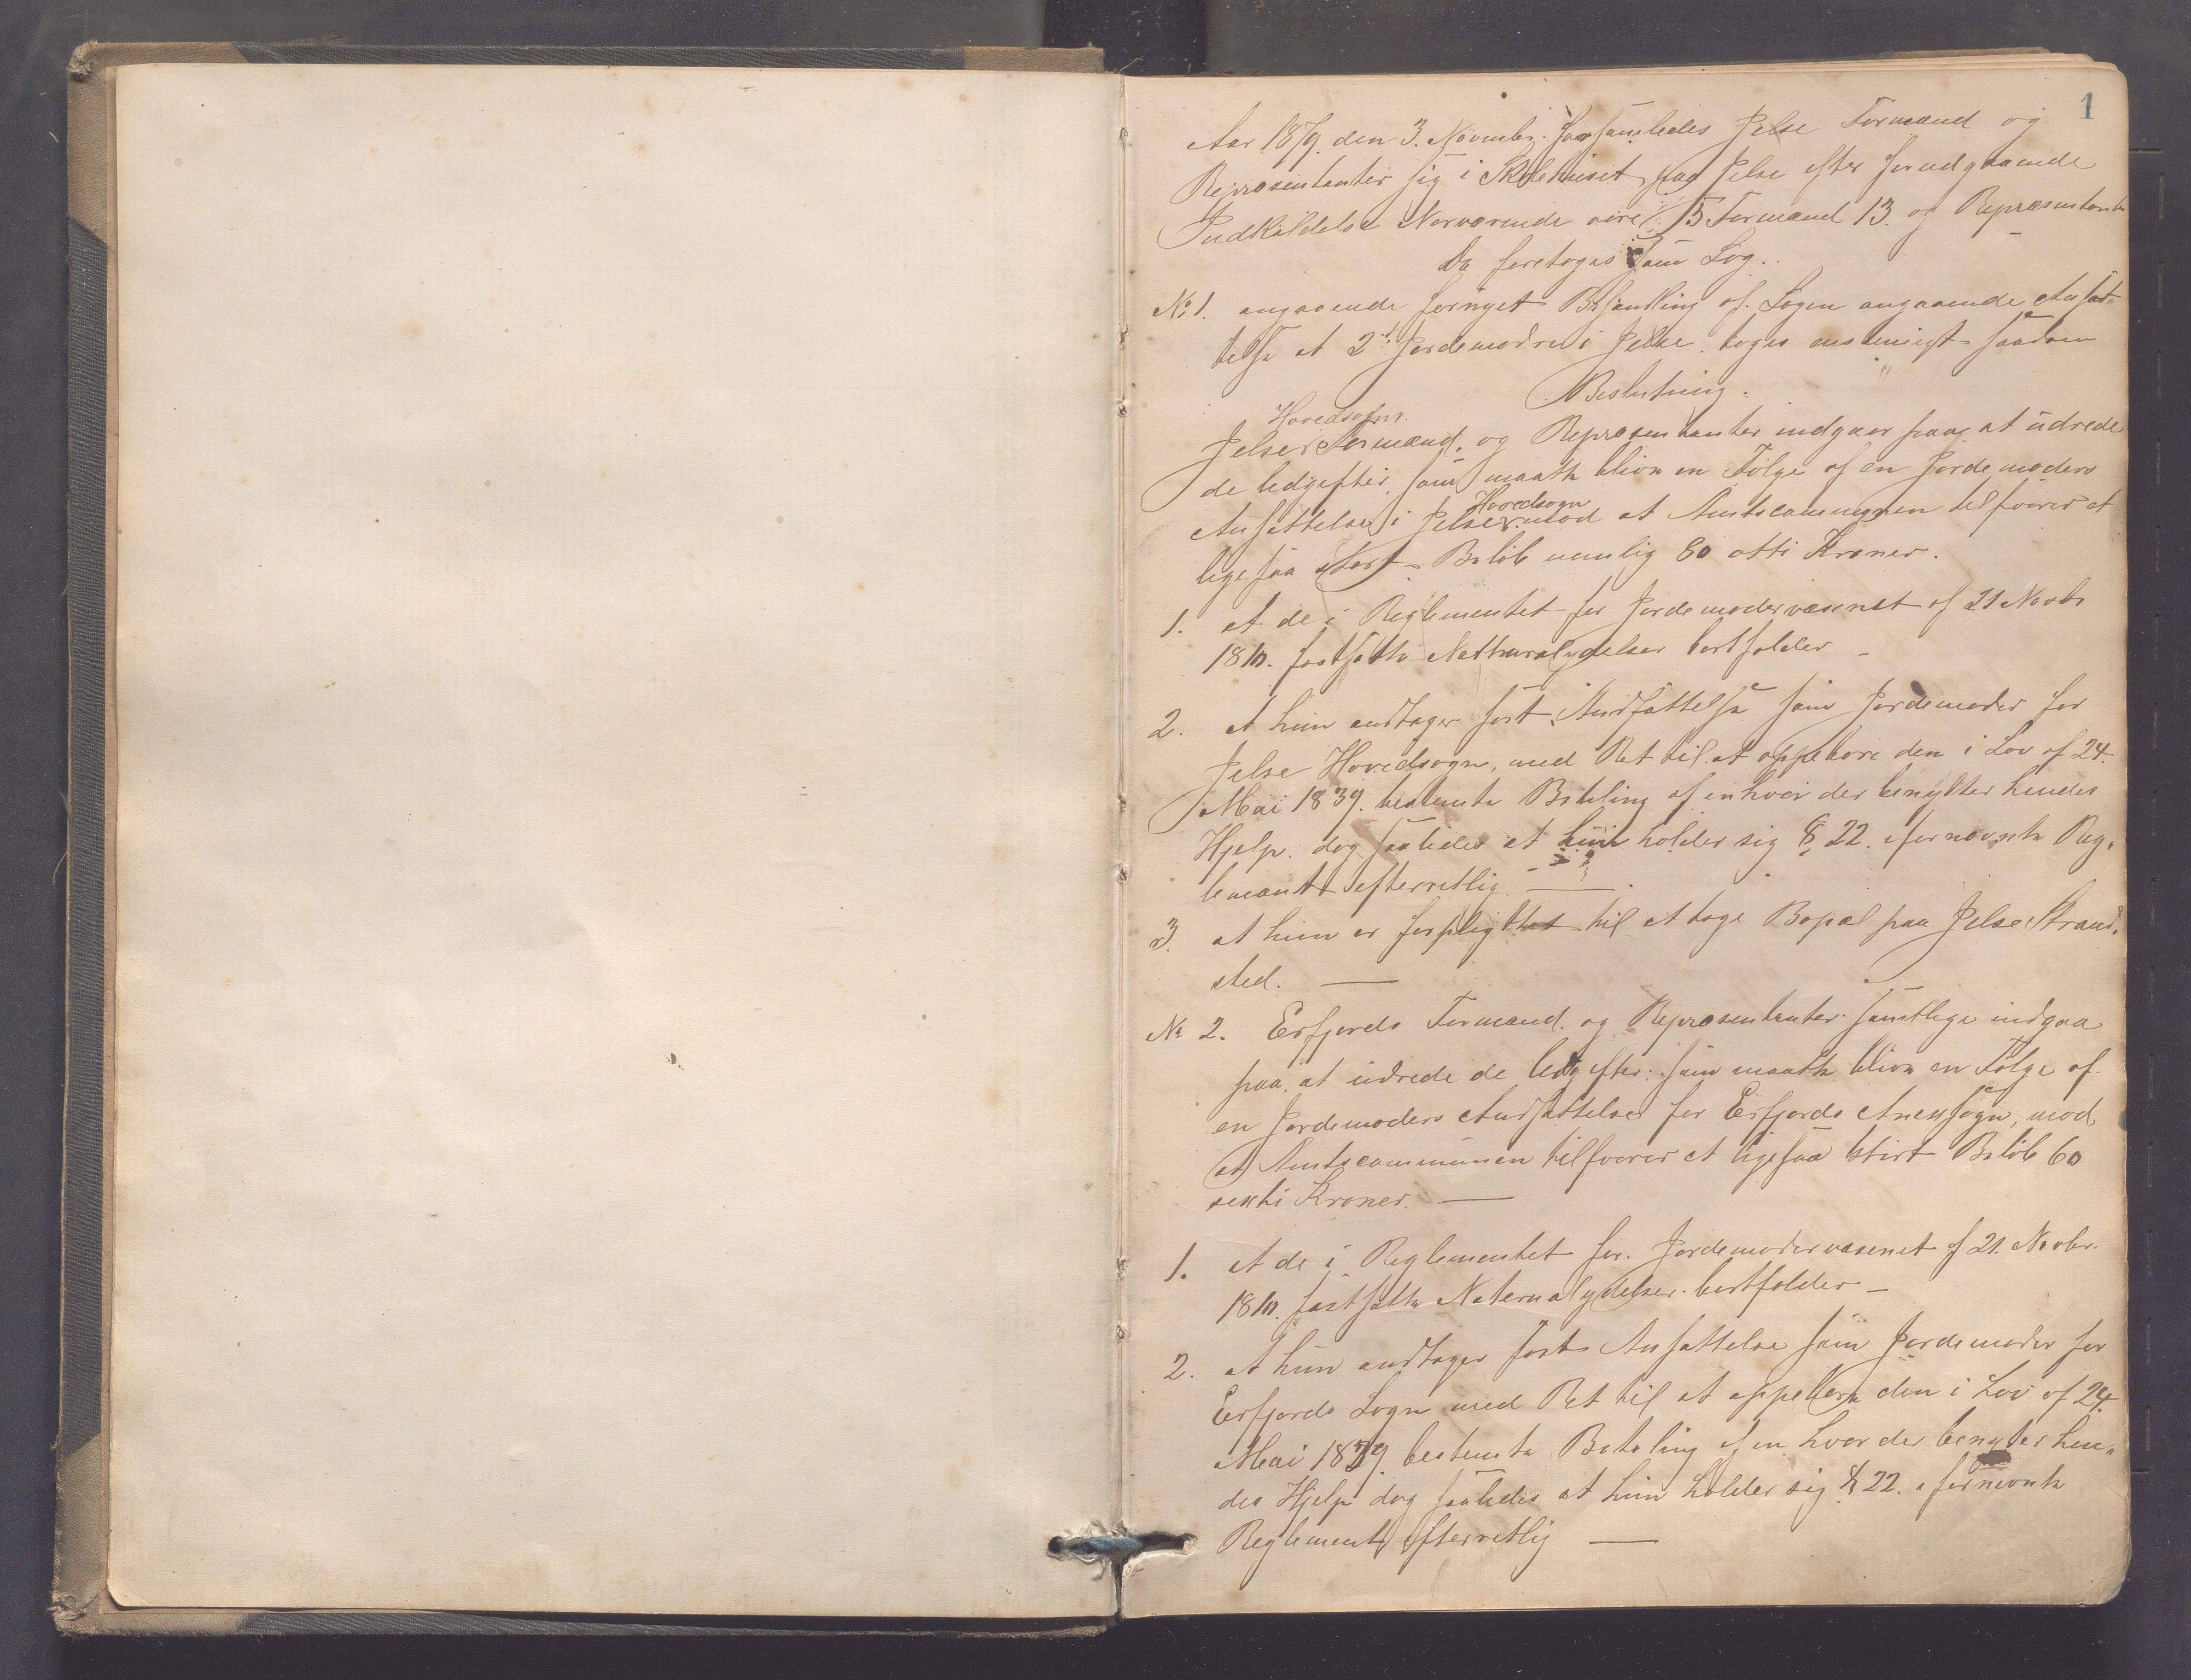 1
Aar 1879. den 3. Novembr. forsamledes Jelse Formænd og
Repræsentanter sig i Skolehuset paa Jelse efter forudgaaende
Indkaldelse Nærværende vare 5 Formænd 13. og Repræsentant
Da foretoges som Sag.
No 1. angaaende fornyet Behandling af Sagen angaaende Ansæt-
telse at 2de Jordemødre i Jelse. toges eenstemigt saadan
Beslutning.
Hovedsogn.
Jelse Formænd. og Repræsentanter indgaar paa at udrede
de Udgifter, som maatte blive en Følge af en Jordemoders
Hovedsogn
Ansættelse i Jelse mod at Amtscommunen tilsvarer et
ligesaa stort Beløb nemlig 80 otti Kroner.
1. At de i Reglementet for Jordemodervæsenet af 21 Novbr
1810. fastsatte Natturalydelser bortfalder
2. At hun andtager fast Andsættelse som Jordemoder for
Jelse Hovedsogn, med Ret til at oppebære den i Lov af 24.
Mai 1839. bestemte Betaling af enhver der benytter hendes
Hjelp. dog saaledes at hun holder sig § 22. i fornævnte Reg-
lement efterretlig.
3. at hun er forpligttet til at tage Bopæl paa Jelse Strand-
sted.
No 2. Erfjords Formænd. og Repræsentanter samtlige indgaa
paa. at udrede de Udgifter: som maatte blive en Følge af
en Jordemoders Andsættelse for Erfjords Anexsogn, mod
at Amtscommunen tilsvarer et ligesaa stort Beløb 60
sexti Kroner.
1. At de i Reglementet for. Jordemodervæsenet af 21. Novbr.
1810. fastsatte Naturalydelser. bortfalder
2. At hun andtager fast Ansættelse som Jordemoder for
Erfjords Sogn med Ret til at oppebære den i Lov af 24.
Mai 1839 bestemte Betaling af en hver der benyter hen-
des Hjelp dog saaledes at hun holder sig § 22. i fornævnte
Reglement efterretlig